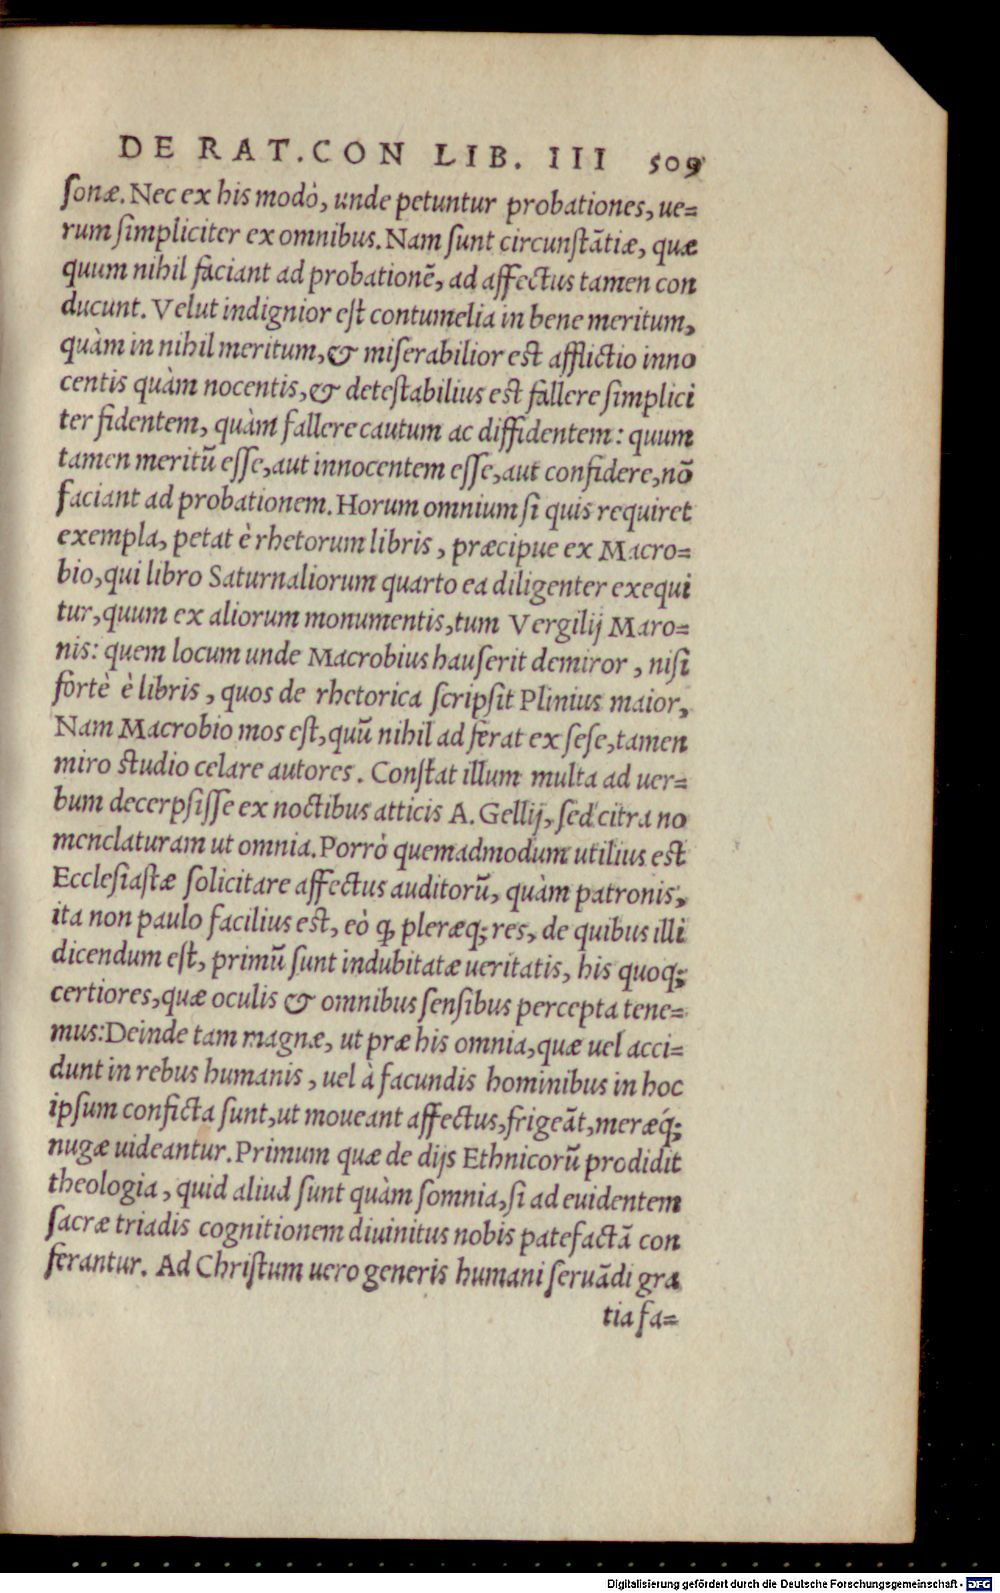 DE RAT. CON LIB. III 509
ſonæ. Nec ex his modò, unde petuntur probationes, ue=
rum ſimpliciter ex omnibus. Nam ſunt circunſtãtiæ, quæ
quum nihil faciant ad probationẽ, ad affectus tamen con
ducunt. Velut indignior eſt contumelia in bene meritum,
quàm in nihil meritum, & miſerabilior est afflictio inno
centis quàm nocentis, & deteſtabilius est fallere ſimplici
ter fidentem, quàm fallere cautum ac diffidentem: quum
tamen meritũ eſſe, aut innocentem eſſe, aut confidere, nõ
faciant ad probationem. Horum omnium ſi quis requiret
exempla, petat è rhetorum libris, præcipue ex Macro=
bio, qui libro Saturnaliorum quarto ea diligenter exequi
tur, quum ex aliorum monumentis, tum Vergilij Maro=
nis: quem locum unde Macrobius hauſerit demiror, niſi
fortè è libris, quos de rhetorica ſcripſit Plinius maior,
Nam Macrobio mos eſt, quũ nihil ad ferat ex ſeſe, tamen
miro studio celare autores. Conſtat illum multa ad uer=
bum decerpſiſſe ex noctibus atticis A. Gellij, ſed citra no
menclaturam ut omnia. Porrò quemadmodum utilius est
Eccleſiaſtæ ſolicitare affectus auditorũ, quàm patronis,
ita non paulo facilius eſt, eò ꝙ pleræq; res, de quibus illi
dicendum eſt, primũ ſunt indubitatæ ueritatis, his quoq;
certiores, quæ oculis & omnibus ſenſibus percepta tene=
mus: Deinde tam magnæ, ut præ his omnia, quæ uel acci=
dunt in rebus humanis, uel à facundis hominibus in hoc
ipſum conficta ſunt, ut moueant affectus, frigeãt, meræq́;
nugæ uideantur. Primum quæ de dijs Ethnicorũ prodidit
theologia, quid aliud ſunt quàm ſomnia, ſi ad euidentem
ſacræ triadis cognitionem diuinitus nobis patefactã con
ferantur. Ad Chriſtum uero generis humani ſeruãdi gra
tia fa=
Digitalisierung gefördert durch die Deutsche Forschungsgemeinschaft - DFG